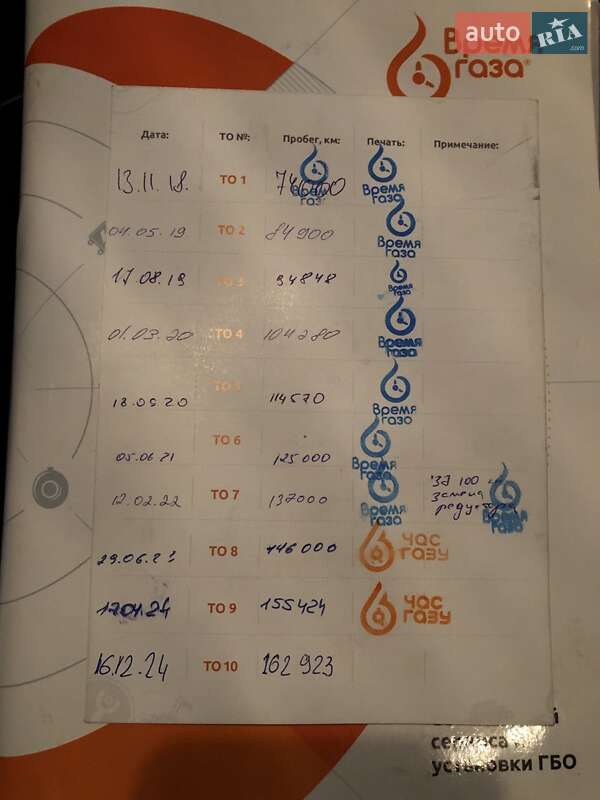 auto RIA .com
Время
газа
Дата: ТО №: Пробег, км: Печать: Примечание:
13.11.18. ТО 1 Время газа
04.05.19 ТО 2 84900 Время газа
17.08.19 ТО 3 94848 Время газа
01.03.20 ТО 4 104280 Время газа
18.09.20 ТО 5 114570 Время газа
05.06.21 ТО 6 125000 Время газа
12.02.22 ТО 7 137000 Время газа 100
замена
редуктора Время газа
29.06.23 ТО 8 146000 ЧАС ГАЗУ
17.04.24 ТО 9 155424 ЧАС ГАЗУ
16.12.24 ТО 10 162 923
установки ГБО